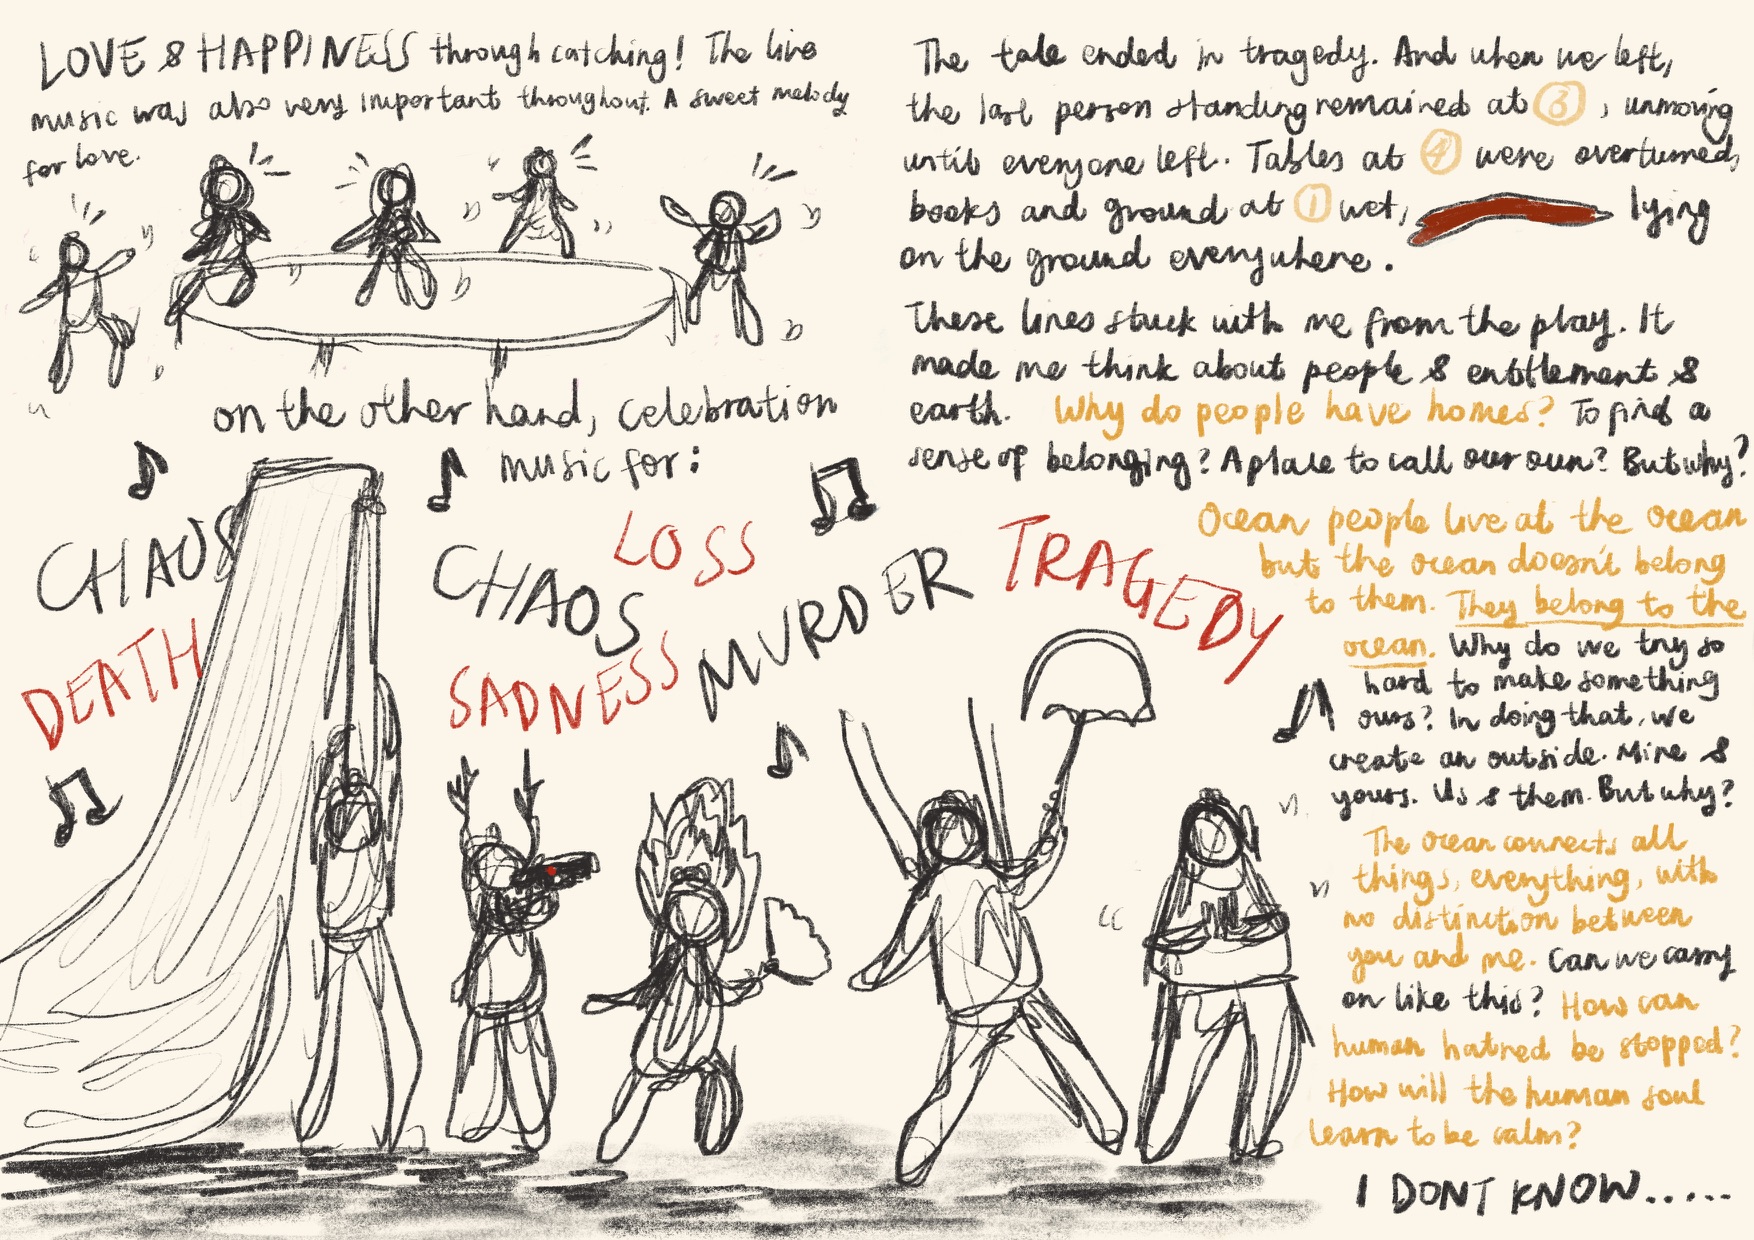 LOVE & HAPPINESS through catching! The live
music was also very important throughout. A sweet melody
for love.
on the other hand, celebration
music for:
CHAOS
DEATH
CHAOS
LOSS
SADNESS
MURDER
TRAGEDY
The tale ended in tragedy. And when we left,
the last person standing remained at ③, unmoving
until everyone left. Tables at ④ were overturned,
books and ground at ① wet, lying
on the ground everywhere.
These lines stuck with me from the play. It
made me think about people & entitlement &
earth. Why do people have homes? To find a
sense of belonging? A place to call our own? But why?
Ocean people live at the ocean
but the ocean doesn't belong
to them. They belong to the
ocean. Why do we try so
hard to make something
ours? In doing that, we
create an outside. Mine &
yours. Us & them. But why?
The ocean connects all
things, everything, with
no distinction between
you and me. Can we carry
on like this? How can
human hatred be stopped?
How will the human soul
learn to be calm?
I DONT KNOW.....